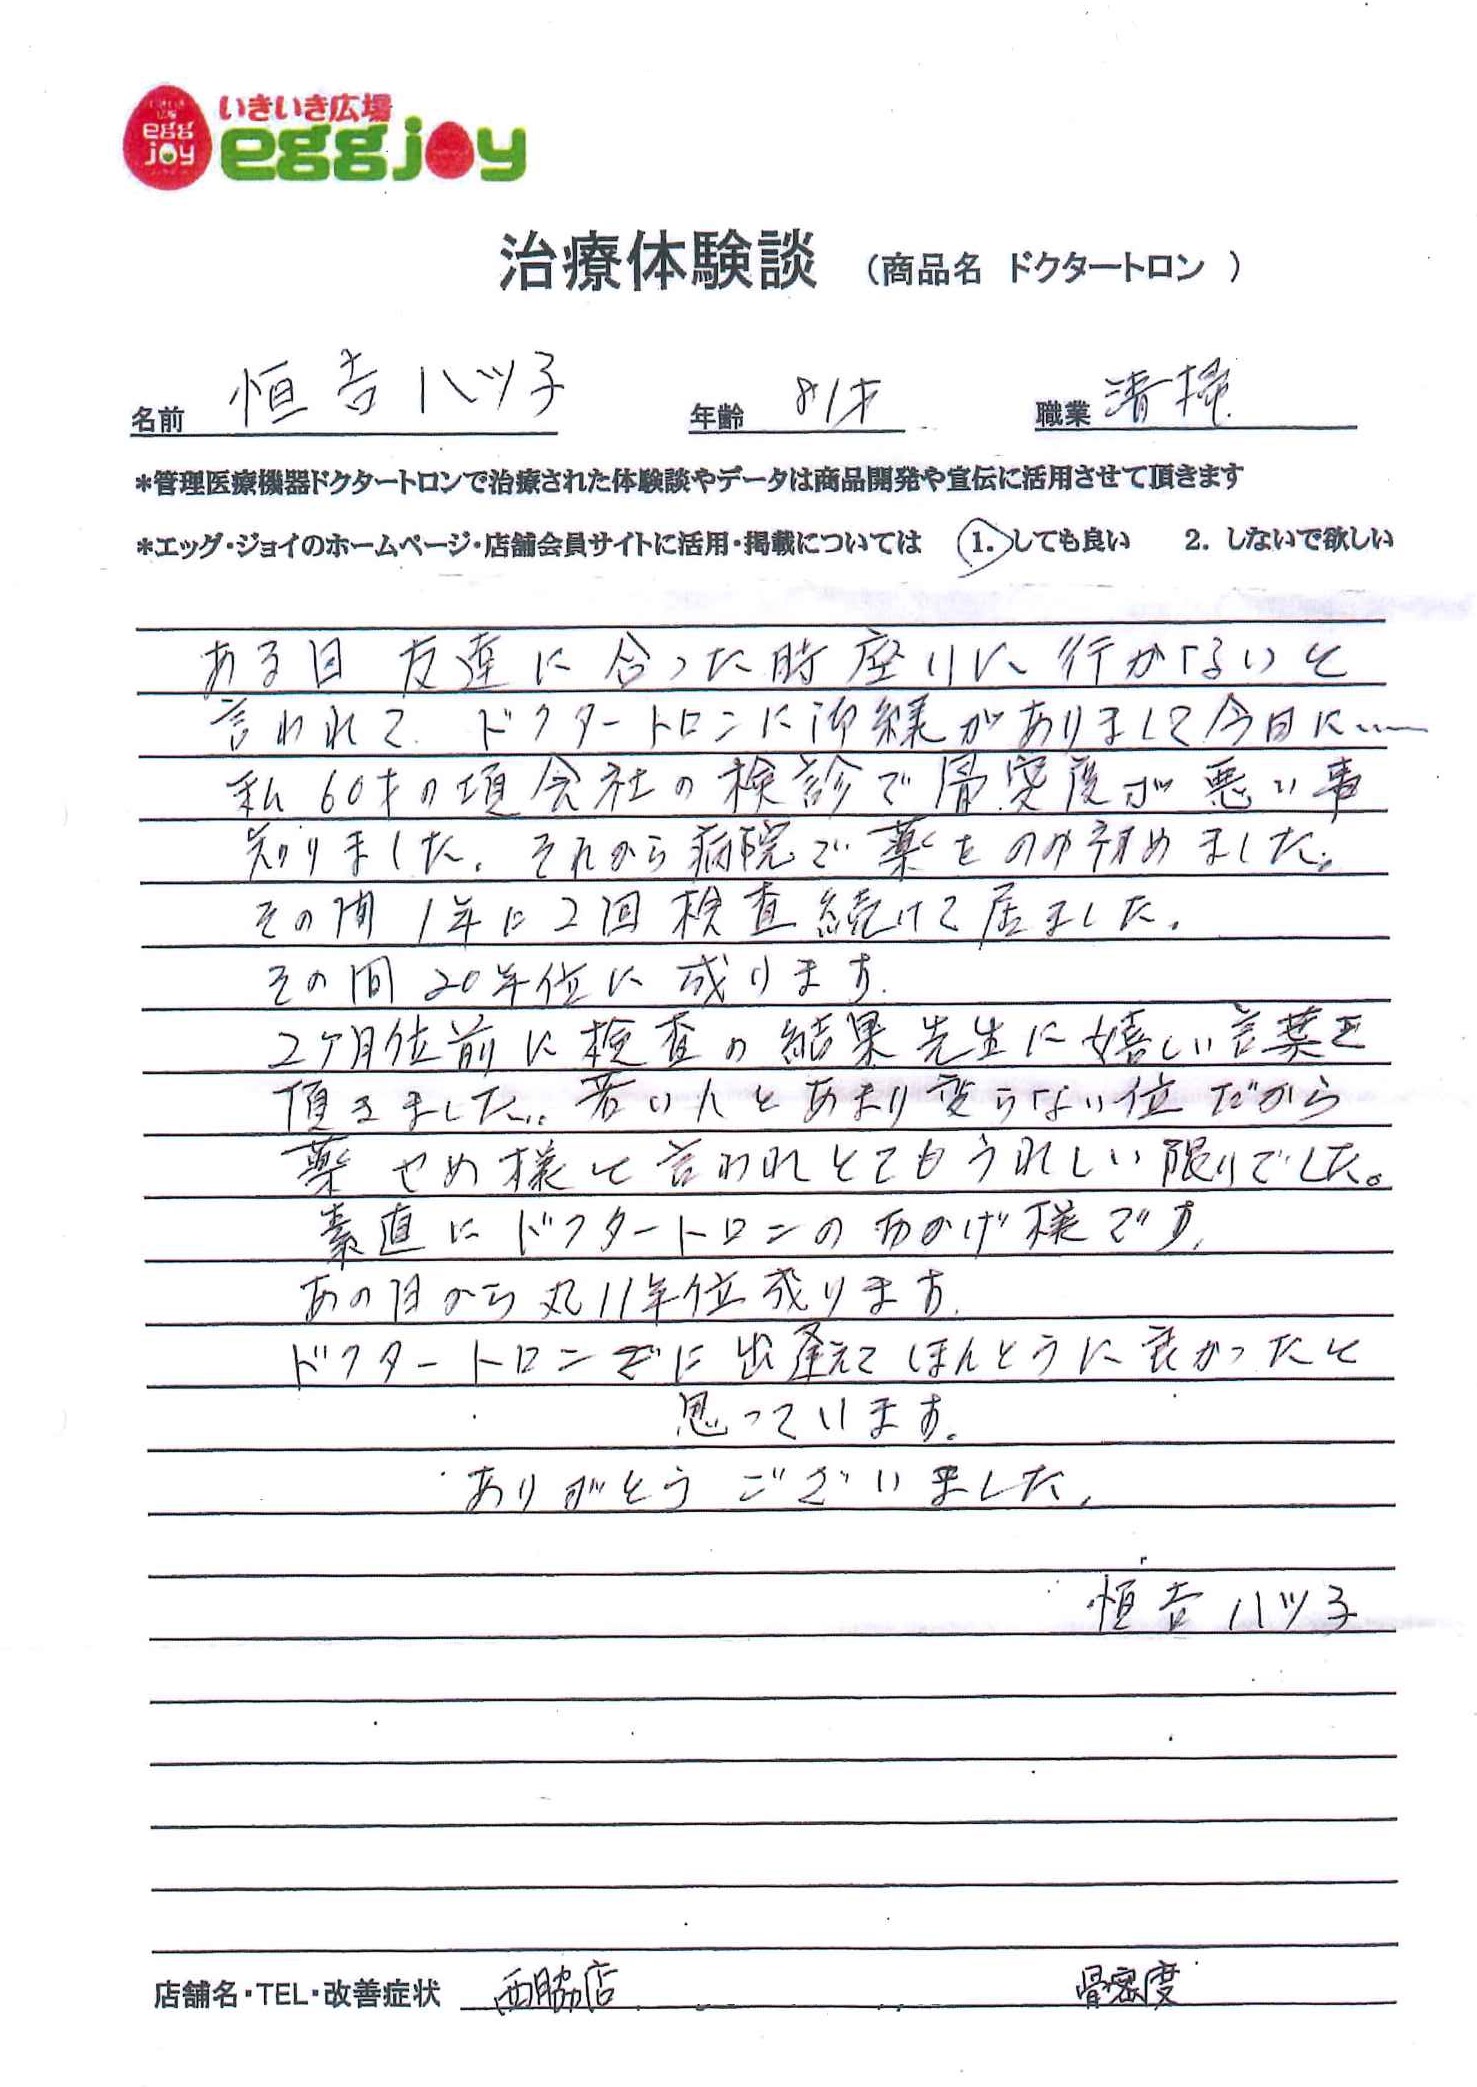 いきいき広場
egg joy
いきいき広場
eggjoy
治療体験談 （商品名 ドクタートロン ）
名前 恒吉ハツ子 年齢 81才 職業 清掃
*管理医療機器ドクタートロンで治療された体験談やデータは商品開発や宣伝に活用させて頂きます
*エッグ・ジョイのホームページ・店舗会員サイトに活用・掲載については 1. しても良い 2. しないで欲しい
ある日 友達に合った時座りに行かないと
言われて ドクタートロンに御縁がありまして今日に……
私60才の頃会社の検診で骨密度が悪い事
知りました。それから病院で薬をのみ初めました。
その間 1年に2回検査続けて居ました。
その間20年位に成ります。
2ヶ月位前に検査の結果先生に嬉しい言葉を
頂きました。若い人とあまり変らない位だから
薬やめ様と言われとてもうれしい限りでした。
素直にドクタートロンのおかげ様です。
あの日から丸11年位成ります。
ドクタートロンに出逢えてほんとうに良かったと
思っています。
ありがとうございました。
恒吉ハツ子
店舗名・TEL・改善症状 西脇店 骨密度